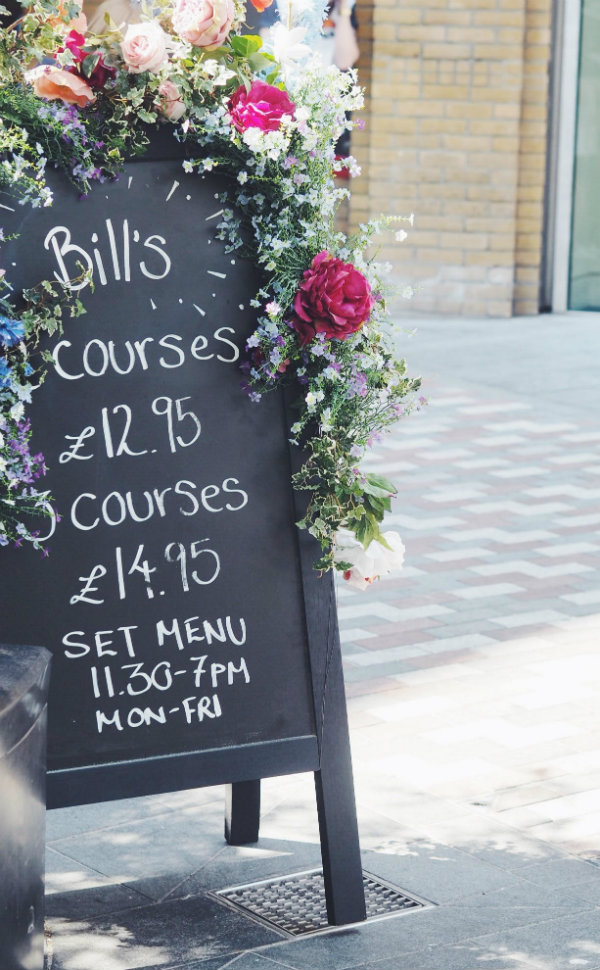 Bill's
courses
£12.95
courses
£14.95
SET MENU
11.30-7PM
MON-FRI